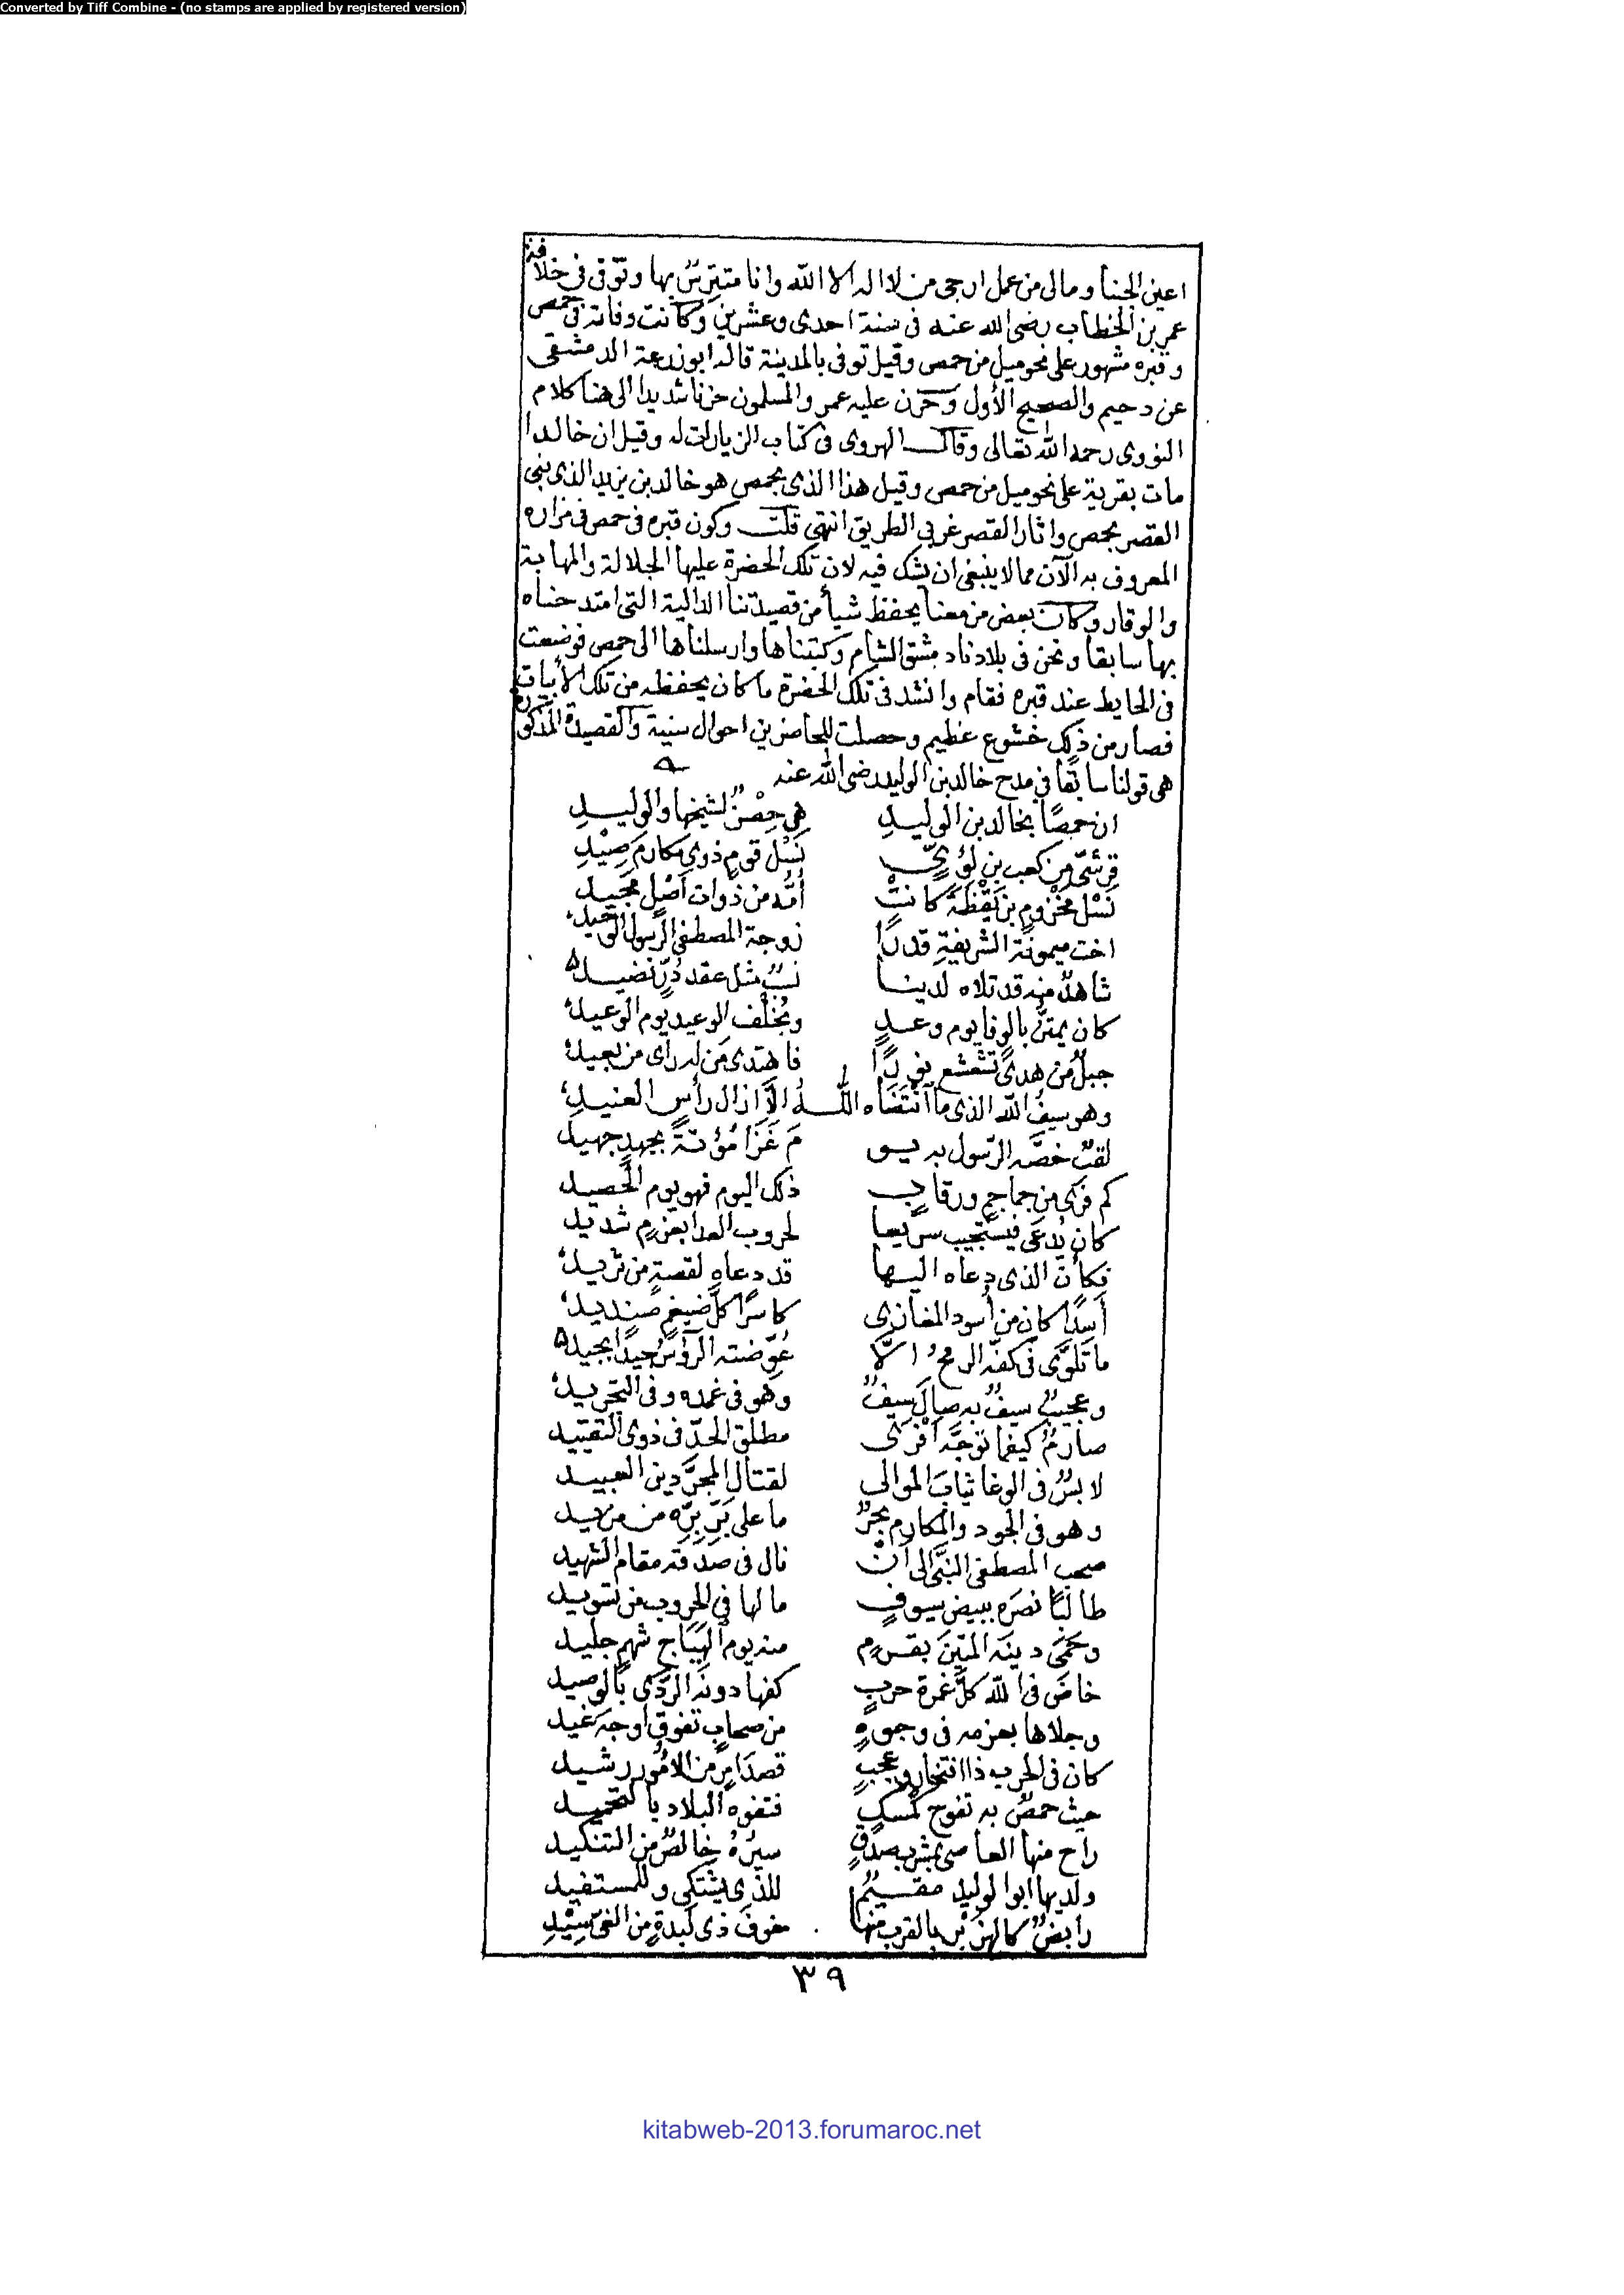 Converted by Tiff Combine - (no stamps are applied by registered version)
اعين الجبنا ومالى من عمل ارجى من لا اله الا الله وانا متترس بها وتوفى فى خلافة
عمر بن الخطاب رضى الله عنه فى سنة احدى وعشرين وكانت وفاته فى حمص
وقبره مشهور على نحو ميل من حمص وقيل توفى بالمدينة قاله ابو زرعة الدمشقى
عن دحيم والصحيح الأول وحزن عليه عمر والمسلمون حزنا شديدا الى هنا كلام
النووى رحمه الله تعالى وقال الهروى فى كتاب الزيارات له وقيل ان خالدا
مات بقرية على نحو ميل من حمص وقيل هذا الذى بحمص هو خالد بن يزيد الذى بنى
القصر بحمص واثار القصر غربى الطريق انتهى قلت وكون قبره فى حمص فى مزاره
المعروف به الآن مما لا ينبغى ان يشك فيه لان تلك الحضرة عليها الجلالة والمهابة
والوقار وكان بعض من معنا يحفظ شيأ من قصيدتنا الدالية التى امتدحناه
بها سابقا ونحن فى بلادنا دمشق الشام وكتبناها وارسلناها الى حمص فوضعت
فى الحايط عند قبره فقام وانشد فى تلك الحضرة ما كان يحفظه من تلك الأبيات
فصار من ذلك خشوع عظيم وحصلت للحاضرين احوال سنية والقصيدة المذكورة
هى قولنا سابقا فى مدح خالد بن الوليد رضى الله عنه
ان حمصًا بخالد بن الوليدِ هى حِصْنٌ لشيخها والوليدِ
قرشىّ من كعب بن لؤىّ نَسْل قومٍ ذوى مكارمَ صِيْدِ
نَسْل مخزوم بن يَقْظَةَ كانتْ اُمّه من ذوات اَصْل مجيد
اخت ميمونة الشريفةِ قدرًا زوجة المصطفى الرسول الوحيد
شاهدٌ منه قد تلاه لدينا نسبٌ مثل عقد دُرٍّ نضيد
كان يمتنّ بالوفا يوم وعدٍ ويُخْلف الوعيد يوم الوعيد
جبلٌ من هدىً تشعشع نورًا فاهتدى مَن له رأى من بعيد
وهو سيفُ الله الذى ما انْتَضَاه اللهُ الاّ ازال رأس العنيدِ
لقبٌ خصّه الرّسول به يو مَ غَزَا مُؤتةً بجهدٍ جهيد
كم فرى من جماجمٍ ورقابٍ ذلك اليوم فهو يوم الحصيد
كان يُدعَى فيستجيب سريعا لحروب العدا بعزمٍ شديد
فكأنّ الذى دعاه اليها قد دعاه لقصعةٍ من ثريد
أسدًا كان من أسود المغازى كاسرًا كلّ ضيغمٍ صنديد
ما تلوّى فى كفّه الرمحُ الاّ عوّضته الرؤسُ جيدًا بجيد
وعجيبٌ سيفٌ به صالَ سيفٌ وهو فى غمده وفى التجريد
صارمٌ كيفما توجّه أفْرَى مطلق الحدّ فى ذوى التقييد
لابسٌ فى الوغا ثيابَ الموالى لقتال المجرّدين العبيد
وهو فى الجود والمكارم بحرٌ ما على بَرِّ بِرّه من مزيد
صحب المصطفى النبىّ الى أنْ نال فى صدقه مقام الشهيد
طالبًا نصرَه ببيض سيوفٍ مالها فى الحروب من تسويد
وحَمَى دينَه المتينَ بقرمٍ منه يوم الهياج شهمٍ جليد
خاضَ فى الله كلّ غمرة حربٍ كفها دونه الرَّدَى بالوصيد
وجلاها بعزمه فى وجوهٍ من صحابٍ تفوق اوجهَ غيد
كان فى الحرب ذا افتخارٍ وعجبٍ من الأمور رشيد
حيث حمصٌ به تفوح كمسكٍ فتفوه البلاد بالتحميد
راح منها العاصى يبشّر بصدقٍ سيرُهُ خالصٌ من التنكيد
ولديها ابو الوليد مقيمٌ للذى يشتكى وللمستفيد
رابضٌ كالهزبْر بالقرب منها خوفَ ذى لبدةٍ من الغىّ سِيْدِ
٣٩
kitabweb-2013.forumaroc.net